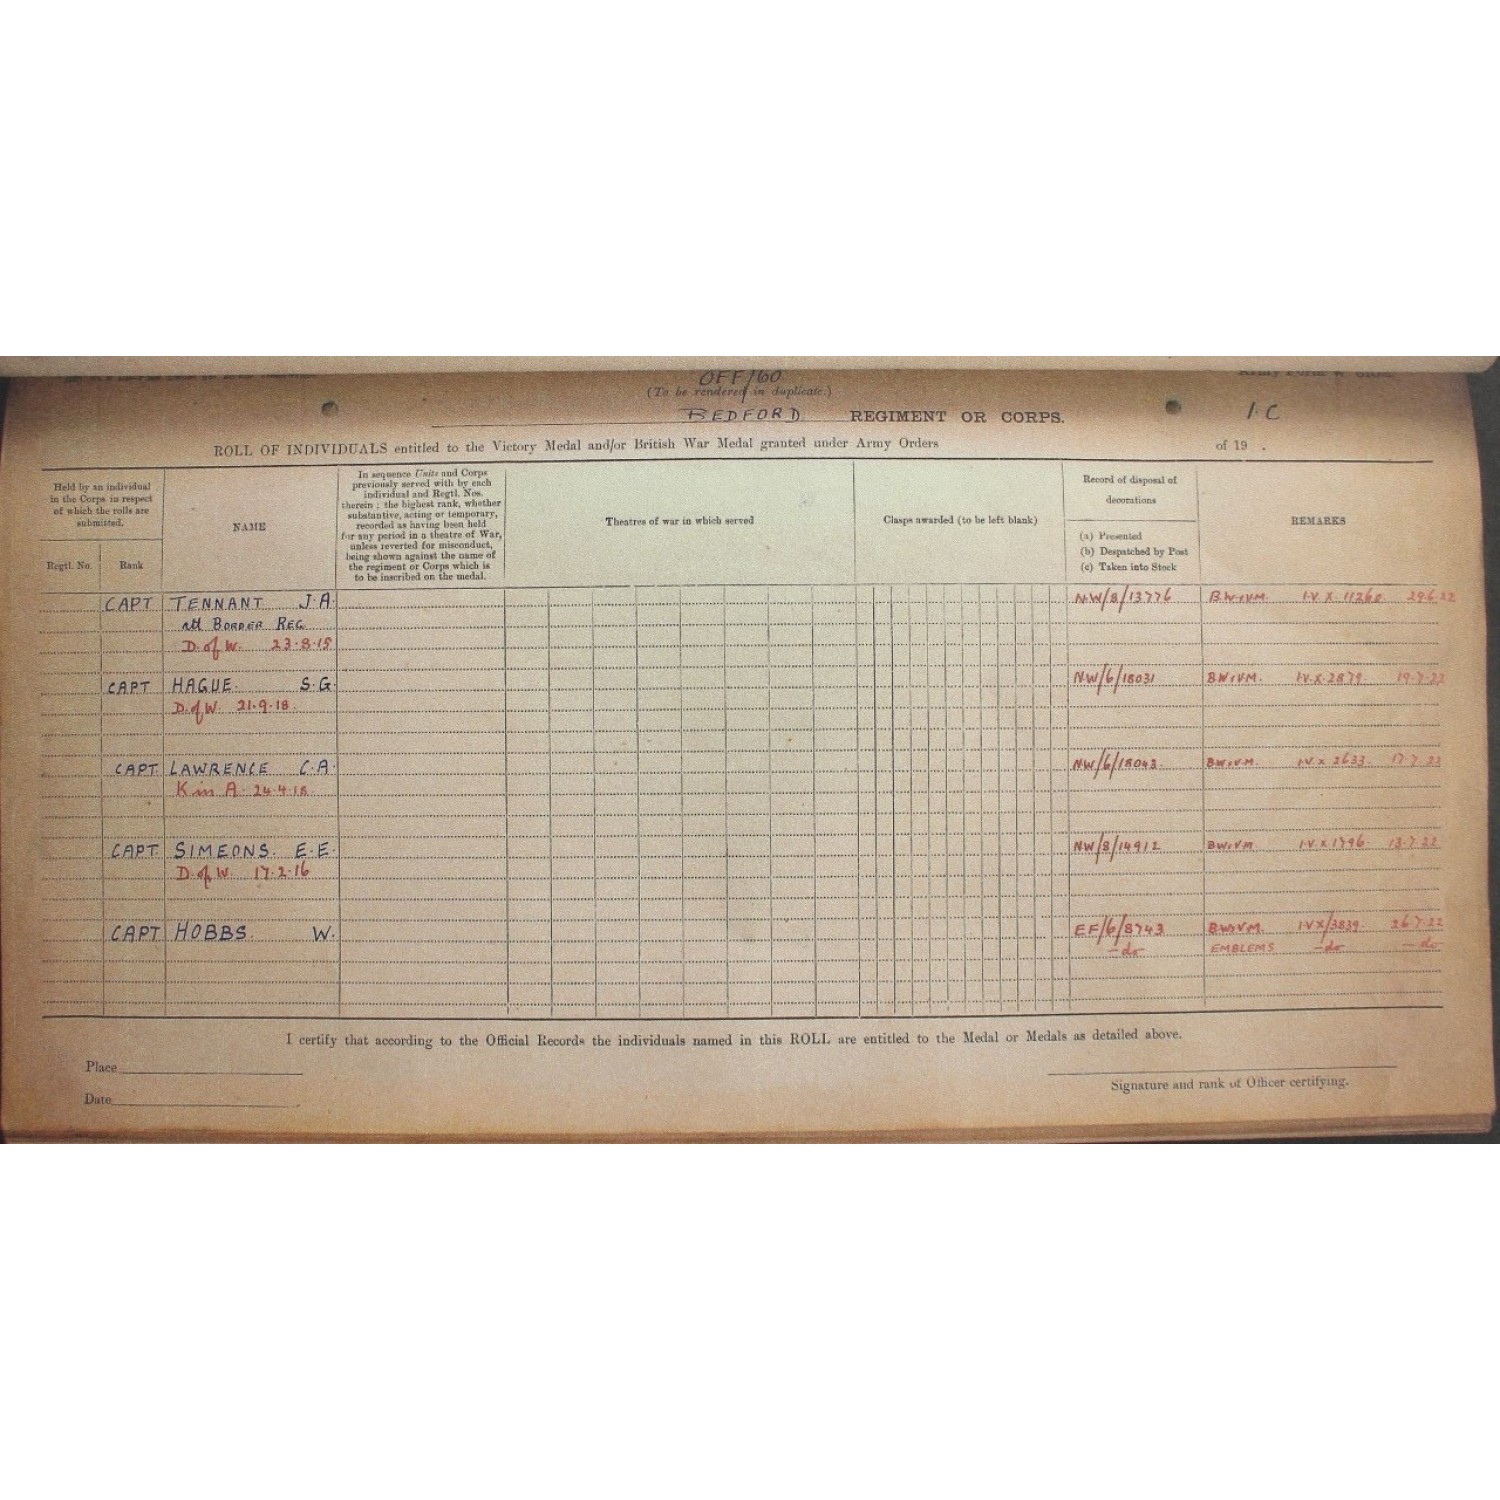 OFF/60
(To be rendered in duplicate.)
BEDFORD REGIMENT OR CORPS. 1.C
ROLL OF INDIVIDUALS entitled to the Victory Medal and/or British War Medal granted under Army Orders of 19 .
Held by an individual
in the Corps in respect
of which the rolls are
submitted.
Regtl. No. Rank
NAME
In sequence Units and Corps
previously served with by each
individual and Regtl. Nos.
therein ; the highest rank, whether
substantive, acting or temporary,
recorded as having been held
for any period in a theatre of War,
unless reverted for misconduct,
being shown against the name of
the regiment or Corps which is
to be inscribed on the medal.
Theatres of war in which served
Clasps awarded (to be left blank)
Record of disposal of
decorations
(a) Presented
(b) Despatched by Post
(c) Taken into Stock
REMARKS
CAPT TENNANT J.A. NW/8/13776 B.W.&V.M. I.V.X.11260 29.6.22
att BORDER REG
D. of W. 23.8.15
CAPT HAGUE. S.G. NW/6/18031 B.W.&V.M. I.V.X.2879. 19.7.22
D. of W. 21.9.18.
CAPT. LAWRENCE C.A. NW/6/18043. B.W.&V.M. I.V.X 2633. 17.7.22
K in A. 24.4.18.
CAPT. SIMEONS. E.E. NW/8/14912 B.W.&V.M. I.V.X 1796. 13.7.22
D. of W. 17.2.16
CAPT HOBBS. W. EF/6/8743 B.W.&V.M. I.V.X/3839. 26.7.22
- do EMBLEMS - do - do
I certify that according to the Official Records the individuals named in this ROLL are entitled to the Medal or Medals as detailed above.
Place
Signature and rank of Officer certifying.
Date